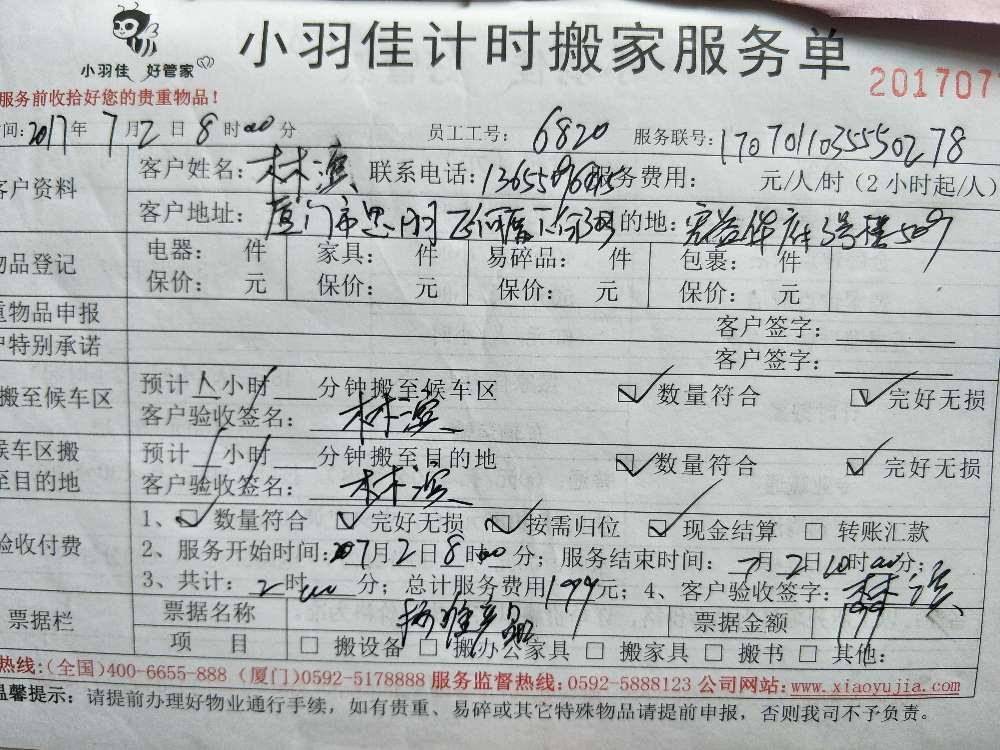 小羽佳 好管家
小羽佳计时搬家服务单
服务前收拾好您的贵重物品！
201707
间:2017年7月2日8时00分 员工工号: 6820 服务联号:
客户资料 客户姓名: 林滨 联系电话: 服务费用: 元/人/时（2小时起/人）
客户地址: 厦门市思明 的地: 3号楼509
物品登记 电器: 件 家具: 件 易碎品: 件 包裹: 件
保价: 元 保价: 元 保价: 元 保价: 元
重物品申报 客户签字:
户特别承诺 客户签字:
搬至候车区 预计1小时/分钟搬至候车区 ☑数量符合 ☑完好无损
客户验收签名: 林滨
候车区搬至目的地 预计/小时/分钟搬至目的地 ☑数量符合 ☑完好无损
客户验收签名: 林滨
验收付费 1、☑数量符合 ☑完好无损 ☑按需归位 ☑现金结算 □转账汇款
2、服务开始时间:2017月2日8时00分; 服务结束时间: 7月2日10时00分;
3、共计: 2时00分; 总计服务费用199元; 4、客户验收签字: 林滨
票据栏 票据名称 票据金额 199
项 目 □搬设备 □搬办公家具 □搬家具 □搬书 □其他:
热线:(全国)400-6655-888 (厦门)0592-5178888 服务监督热线:0592-5888123 公司网站:www.xiaoyujia.com
温馨提示: 请提前办理好物业通行手续, 如有贵重、易碎或其它特殊物品请提前申报, 否则我司不予负责。